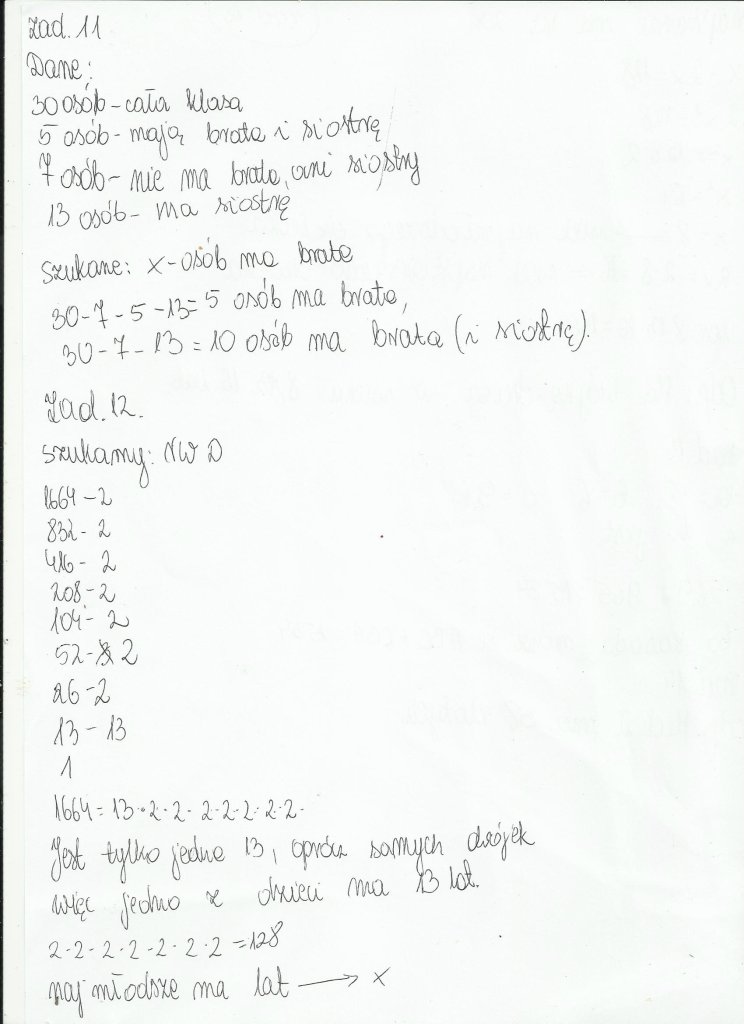 Zad. 11
Dane:
30 osób - cała klasa
5 osób - mają brata i siostrę
7 osób - nie ma brata, ani siostry
13 osób - ma siostrę
Szukane: x - osób ma brata
30 - 7 - 5 - 13 = 5 osób ma brata,
30 - 7 - 13 = 10 osób ma brata (i siostrę).
Zad. 12.
szukamy: NWD
1664 - 2
832 - 2
416 - 2
208 - 2
104 - 2
52 - 2
26 - 2
13 - 13
1
1664 = 13 · 2 · 2 · 2 · 2 · 2 · 2 · 2 ·
Jest tylko jedna 13, oprócz samych dwójek
więc jedno z dzieci ma 13 lat.
2 · 2 · 2 · 2 · 2 · 2 · 2 = 128
najmłodsze ma lat → x